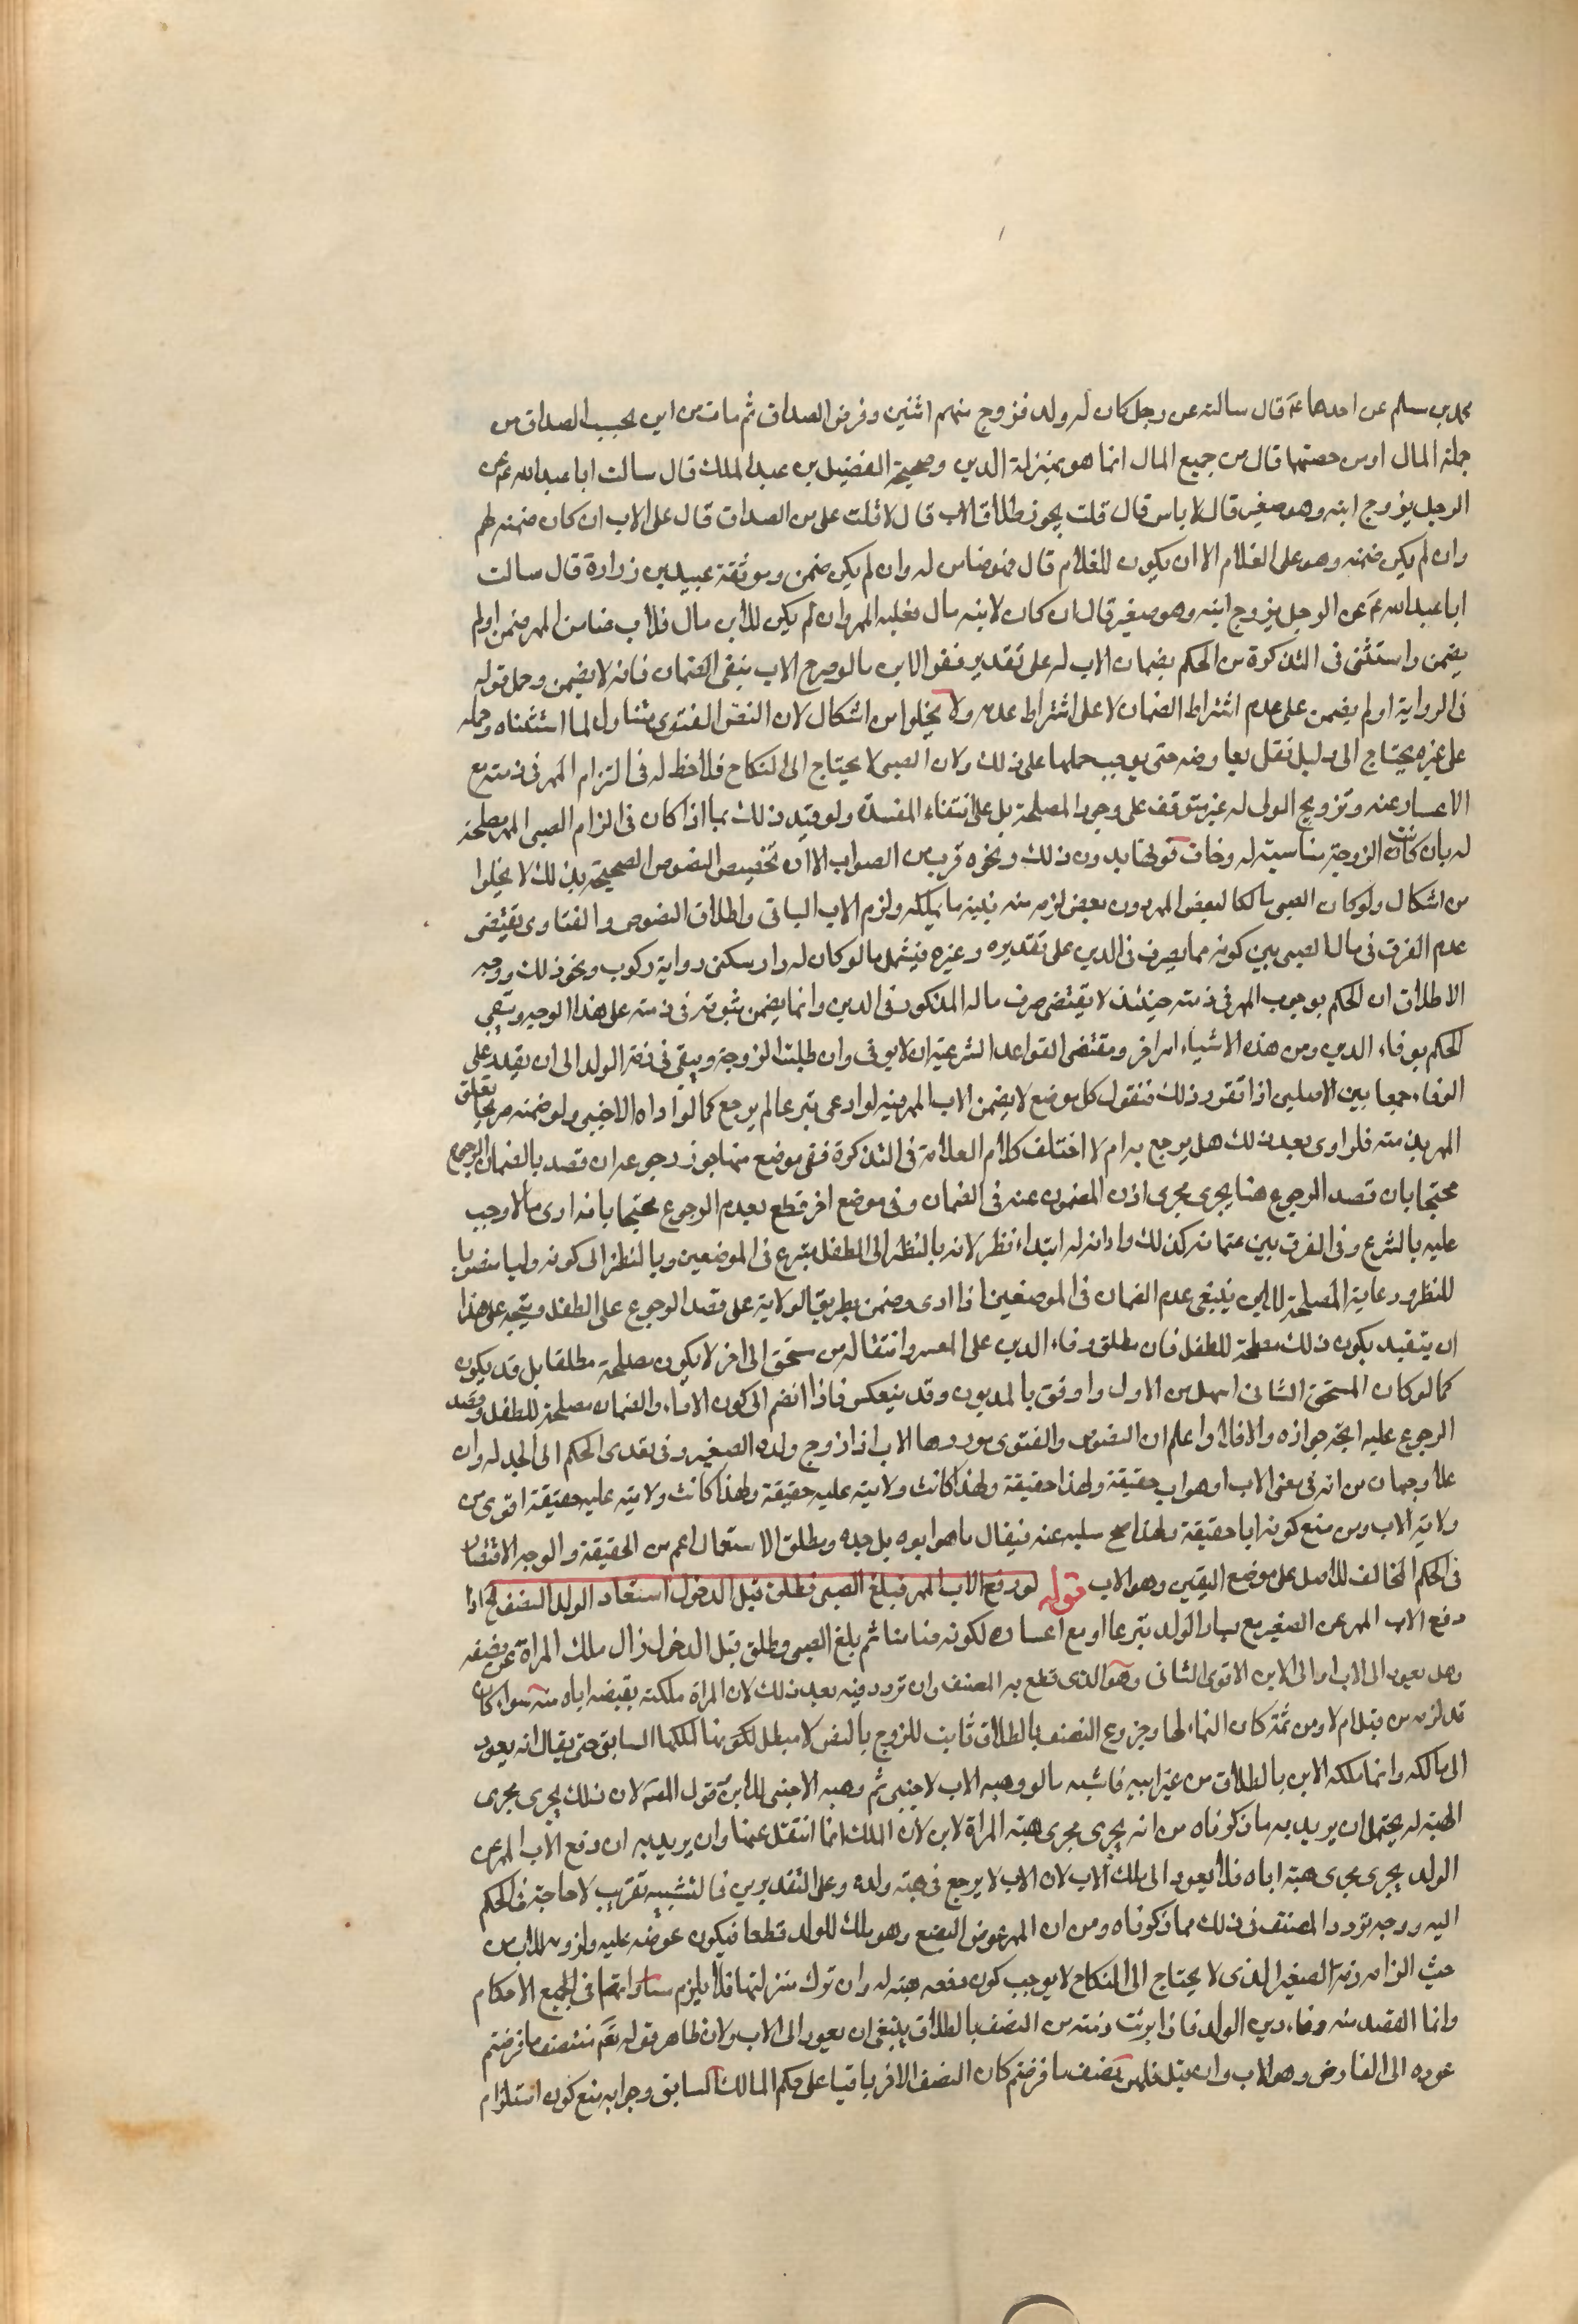 محمد بن مسلم عن احدهما عم قال سالته عن رجل كان له ولد فزوج منهم اثنين وفرض الصداق ثم مات من اين يحسب الصداق من
جملة المال او من حصتهما قال من جميع المال انما هو بمنزلة الدين وصحيحة الفضيل بن عبد الملك قال سالت ابا عبد الله عم عن
الرجل يزوج ابنه وهو صغير قال لا باس قال قلت يجوز طلاق الاب قال لا قلت على من الصداق قال على الاب ان كان ضمنه لهم
وان لم يكن ضمنه وهو على الغلام الا ان يكون للغلام قال فهو ضامن له وان لم يكن ضمن وموثقة عبيد بن زرارة قال سالت
ابا عبد الله عم عن الرجل يزوج ابنه وهو صغير قال ان كان لابنه مال فعليه المهر وان لم يكن للابن مال فالاب ضامن المهر ضمن او لم
يضمن واستثنى فى التذكرة من الحكم بضمان الاب له على تقدير فقر الابن ما لو صرح الاب بنفى الضمان فانه لا يضمن وحمل قوله
فى الرواية او لم يضمن على عدم اشتراط الضمان لا على اشتراط عدمه ولا يخلوا من اشكال لان النص الفتوى متناول لما استثناه وحمله
على غيره يحتاج الى دليل نقل يعارضه حتى يوجب حملها على ذلك ولان الصبى لا يحتاج الى النكاح فلا حظ له فى التزام المهر فى ذمته مع
الاعسار عنه وتزويج الولى له غير متوقف على وجود المصلحة بل على انتفاء المفسدة ولو قيد ذلك بما اذا كان فى الزام الصبى المهر مصلحة
له بان كانت الزوجة مناسبة له وخاف فوتها بدون ذلك ونحوه قرب من الصواب الا ان تخصيص النصوص الصحيحة بذلك لا يخلوا
من اشكال ولو كان الصبى مالكا لبعض المهر دون بعض لزمه منه بنسبة ما يملكه ولزم الاب الباقى واطلاق النصوص والفتاوى يقتضى
عدم الفرق فى مال الصبى بين كونه مما يصرف فى الدين على تقديره وغيره فيشمل ما لو كان له دار سكنى ودابة ركوب ونحو ذلك ووجه
الاطلاق ان الحكم بوجوب المهر فى ذمته حينئذ لا يقتضى صرف ماله المذكور فى الدين وانما يضمن ثبوته فى ذمته على هذا الوجه ويبقى
الحكم بوفاء الدين ومن هذه الاشياء امر اخر ومقتضى القواعد الشرعية ان لا يوفى وان طلبت الزوجة ويبقى فى ذمة الولد الى ان يقدر على
الوفاء جمعا بين الاصلين اذا تقرر ذلك فنقول كل موضع لا يضمن الاب المهر فيه لو ادعى تبرعا لم يرجع كما لو اداه الاجنبى ولو ضمنه صريحا تعلق
المهر بذمته فلو ادى بعد ذلك هل يرجع به ام لا اختلف كلام العلامة فى التذكرة ففى موضع منها جوز رجوعه ان قصد بالضمان الرجوع
محتجا بان قصد الرجوع هنا يجرى مجرى اذن المضمون عنه فى الضمان وفى موضع اخر قطع بعدم الرجوع محتجا بانه ادى مالا وجب
عليه بالشرع وفى الفرق بين ضمانه كذلك وادائه له ابتداء نظر لانه بالنظر الى الطفل متبرع فى الموضعين وبالنظر الى كونه وليا منصوبا
للنظر ورعاية المصلحة للابن ينبغى عدم الضمان فى الموضعين اذا ادى وضمن بطريق الولاية على قصد الرجوع على الطفل ويتجه على هذا
ان يتقيد بكون ذلك مصلحة للطفل فان مطلق وفاء الدين على المعسر وانتقاله من مستحق الى اخر لا يكون مصلحة مطلقا بل قد يكون
كما لو كان المستحق الثانى اسهل من الاول واوفق بالمديون وقد ينعكس فاذا انضم الى كون الاداء والضمان مصلحة للطفل وقصد
الرجوع عليه اتجه جوازه والا فلا واعلم ان النصوص والفتوى موردها الاب اذا زوج ولده الصغير وفى تعدى الحكم الى الجد له وان
علا وجهان من انه فى معنى الاب او هو اب حقيقة ولهذا حقيقة ولهذا كانت ولايته عليه حقيقة ولهذا كانت ولايته عليه حقيقة اقوى من
ولاية الاب ومن منع كونه ابا حقيقة ولهذا صح سلبه عنه فيقال ما هو ابوه بل جده ومطلق الاستعمال اعم من الحقيقة والوجه الاقتصار
فى الحكم المخالف للاصل على موضع اليقين وهو الاب قوله لو دفع الاب المهر فبلغ الصبى فطلق قبل الدخول استعاد الولد النصف الخ اذا
دفع الاب المهر عن الصغير مع يسار الولد تبرعا او مع اعساره لكونه ضامنا ثم بلغ الصبى وطلق قبل الدخول زال ملك المراة عن نصفه
وهل يعود الى الاب او الى الابن الاقوى الثانى وهو الذى قطع به المصنف وان تردد فيه بعد ذلك لان المراة ملكته بقبضه اياه منه سواء كان
قد لزمه من قبل ام لا ومن ثمة كان النماء لها وجزوع النصف بالطلاق ثابت للزوج بالنص لا مبطل لكونها الملكما السابق حتى يقال انه يعود
الى مالكه وانما ملكه الابن بالطلاق من غير ابيه فاشبه ما لو وهبه الاب لاجنبى ثم وهبه الاجنبى للابن قول المصه لان ذلك يجرى مجرى
الهبة له يحتمل ان يريد به ما ذكرناه من انه يجرى مجرى هبة المراة لابن لان الملك انما انتقل عنها وان يريد به ان دفع الاب المهر عن
الولد يجرى مجرى هبة اباه فلا يعود الى ملك الاب لان الاب لا يرجع فى هبته ولده وعلى التقديرين فالتشبيه تقريب لا حاجة فى الحكم
اليه ووجه تردد المصنف فى ذلك مما ذكرناه ومن ان المهر عوض البضع وهو ملك للولد قطعا فيكون عوضه عليه ولزومه للاب من
حيث الزامه ذمة الصغير الذى لا يحتاج الى النكاح لا يوجب كون دفعه هبة له وان نزل منزلتها فلا يلزم مساواتهما فى جميع الاحكام
وانما القصد منه وفاء دين الولد فاذا ابرئت ذمته من النصف بالطلاق ينبغى ان يعود الى الاب ولان ظاهر قوله تعم فنصف ما فرضتم
عوده الى الفارض وهو الاب وان قيل فلهن نصف ما فرضتم كان النصف الاخر باقيا على حكم المالك السابق وجوابه منع كون استلزام